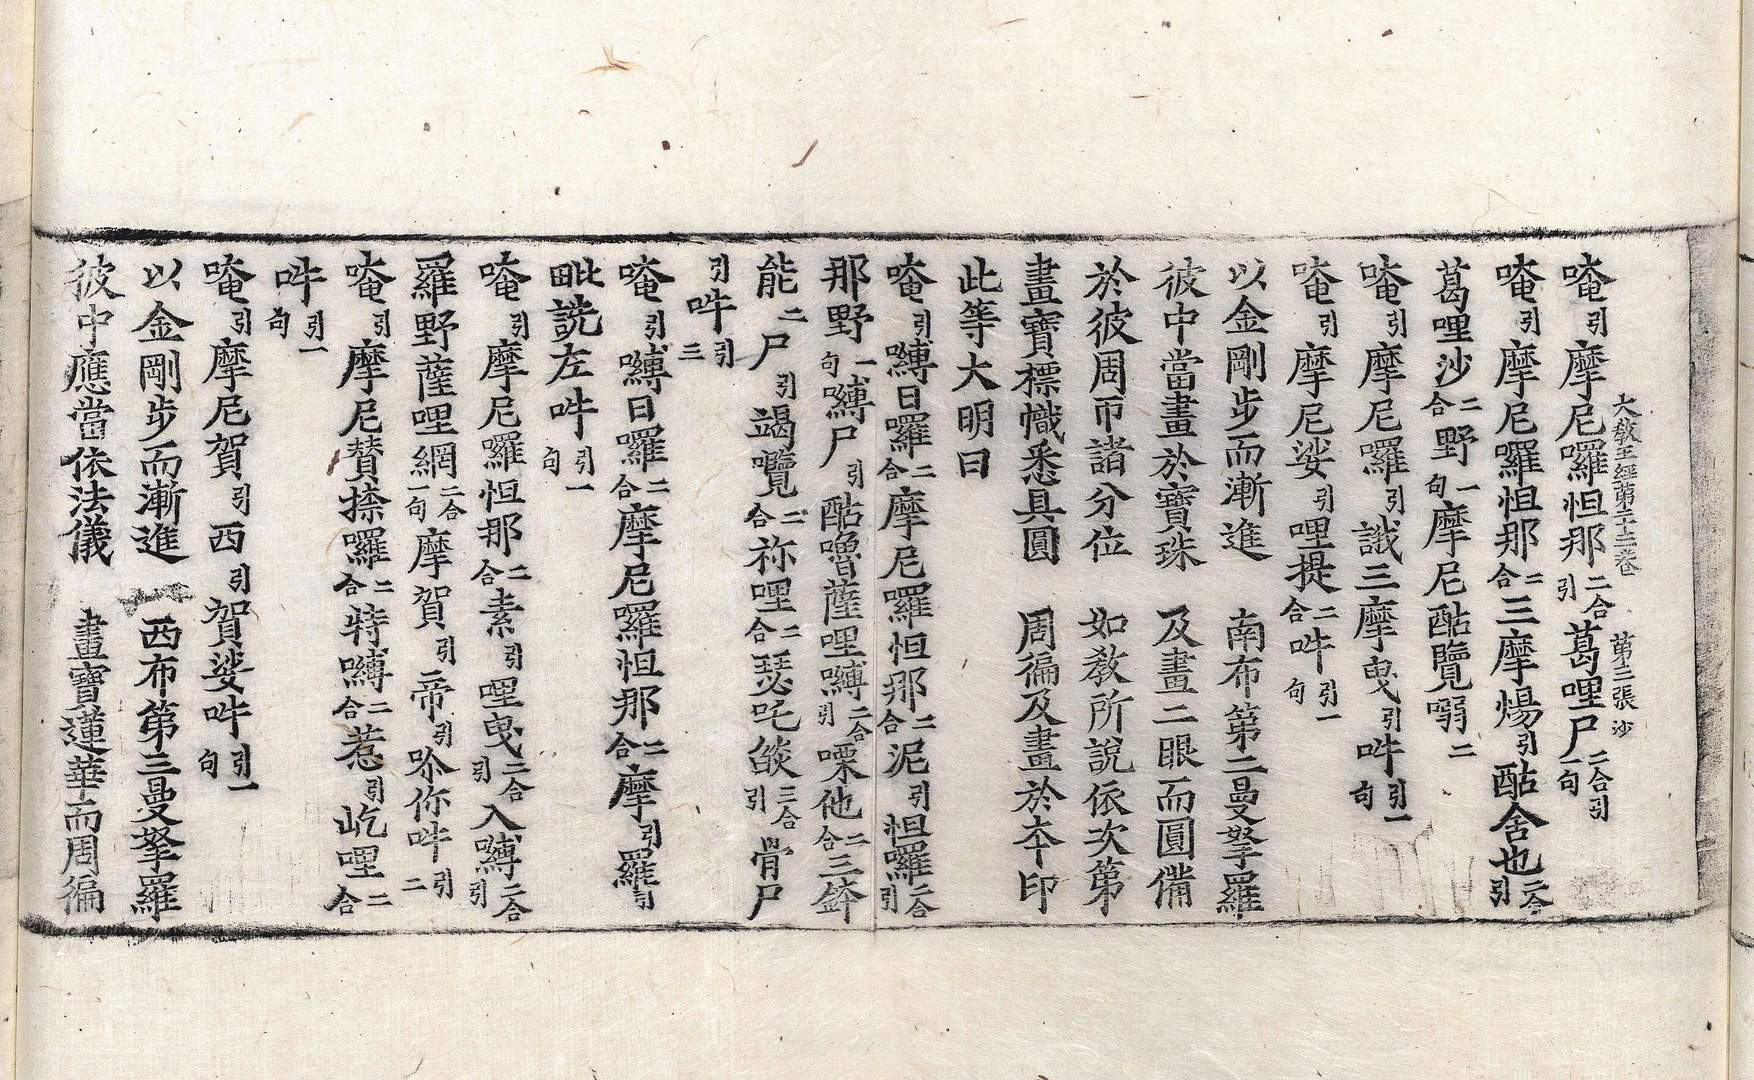 大敎王經第二十二卷　第十二張　沙
唵引摩尼囉怛那二合引葛哩尸二合引一句
唵引摩尼囉怛那二合三摩煬引酤舍也二合引
葛哩沙二合野一句摩尼酤覽㗚二
唵引摩尼囉引誐三摩曳引吽引一句
唵引摩尼娑引哩提二合吽引一句
以金剛步而漸進　南布第二曼拏羅
彼中當畫於寶珠　及畫二眼而圓備
於彼周帀諸分位　如敎所說依次第
畫寶摽幟悉具圓　周徧及畫於本印
此等大明曰
唵引嚩日囉二合摩尼囉怛那二合泥引怛囉二合引
那野一句嚩尸引酤嚕薩哩嚩二合引㗚他二合三鉢
能二尸引竭囕二合祢哩二合瑟吒㰠三合引骨尸
引吽引三
唵引嚩日囉二合摩尼囉怛那二合摩引羅引
毗詵左吽引一句
唵引摩尼囉怛那二合素引哩曳二合引入嚩二合引
羅野薩哩網二合一句摩賀引帝引𠰷你吽引二
唵引摩尼贊捺囉二合特嚩二合惹引屹哩二合
吽引一句
唵引摩尼賀引西引賀娑吽引一句
以金剛步而漸進　西布第三曼拏羅
彼中應當依法儀　畫寶蓮華而周徧